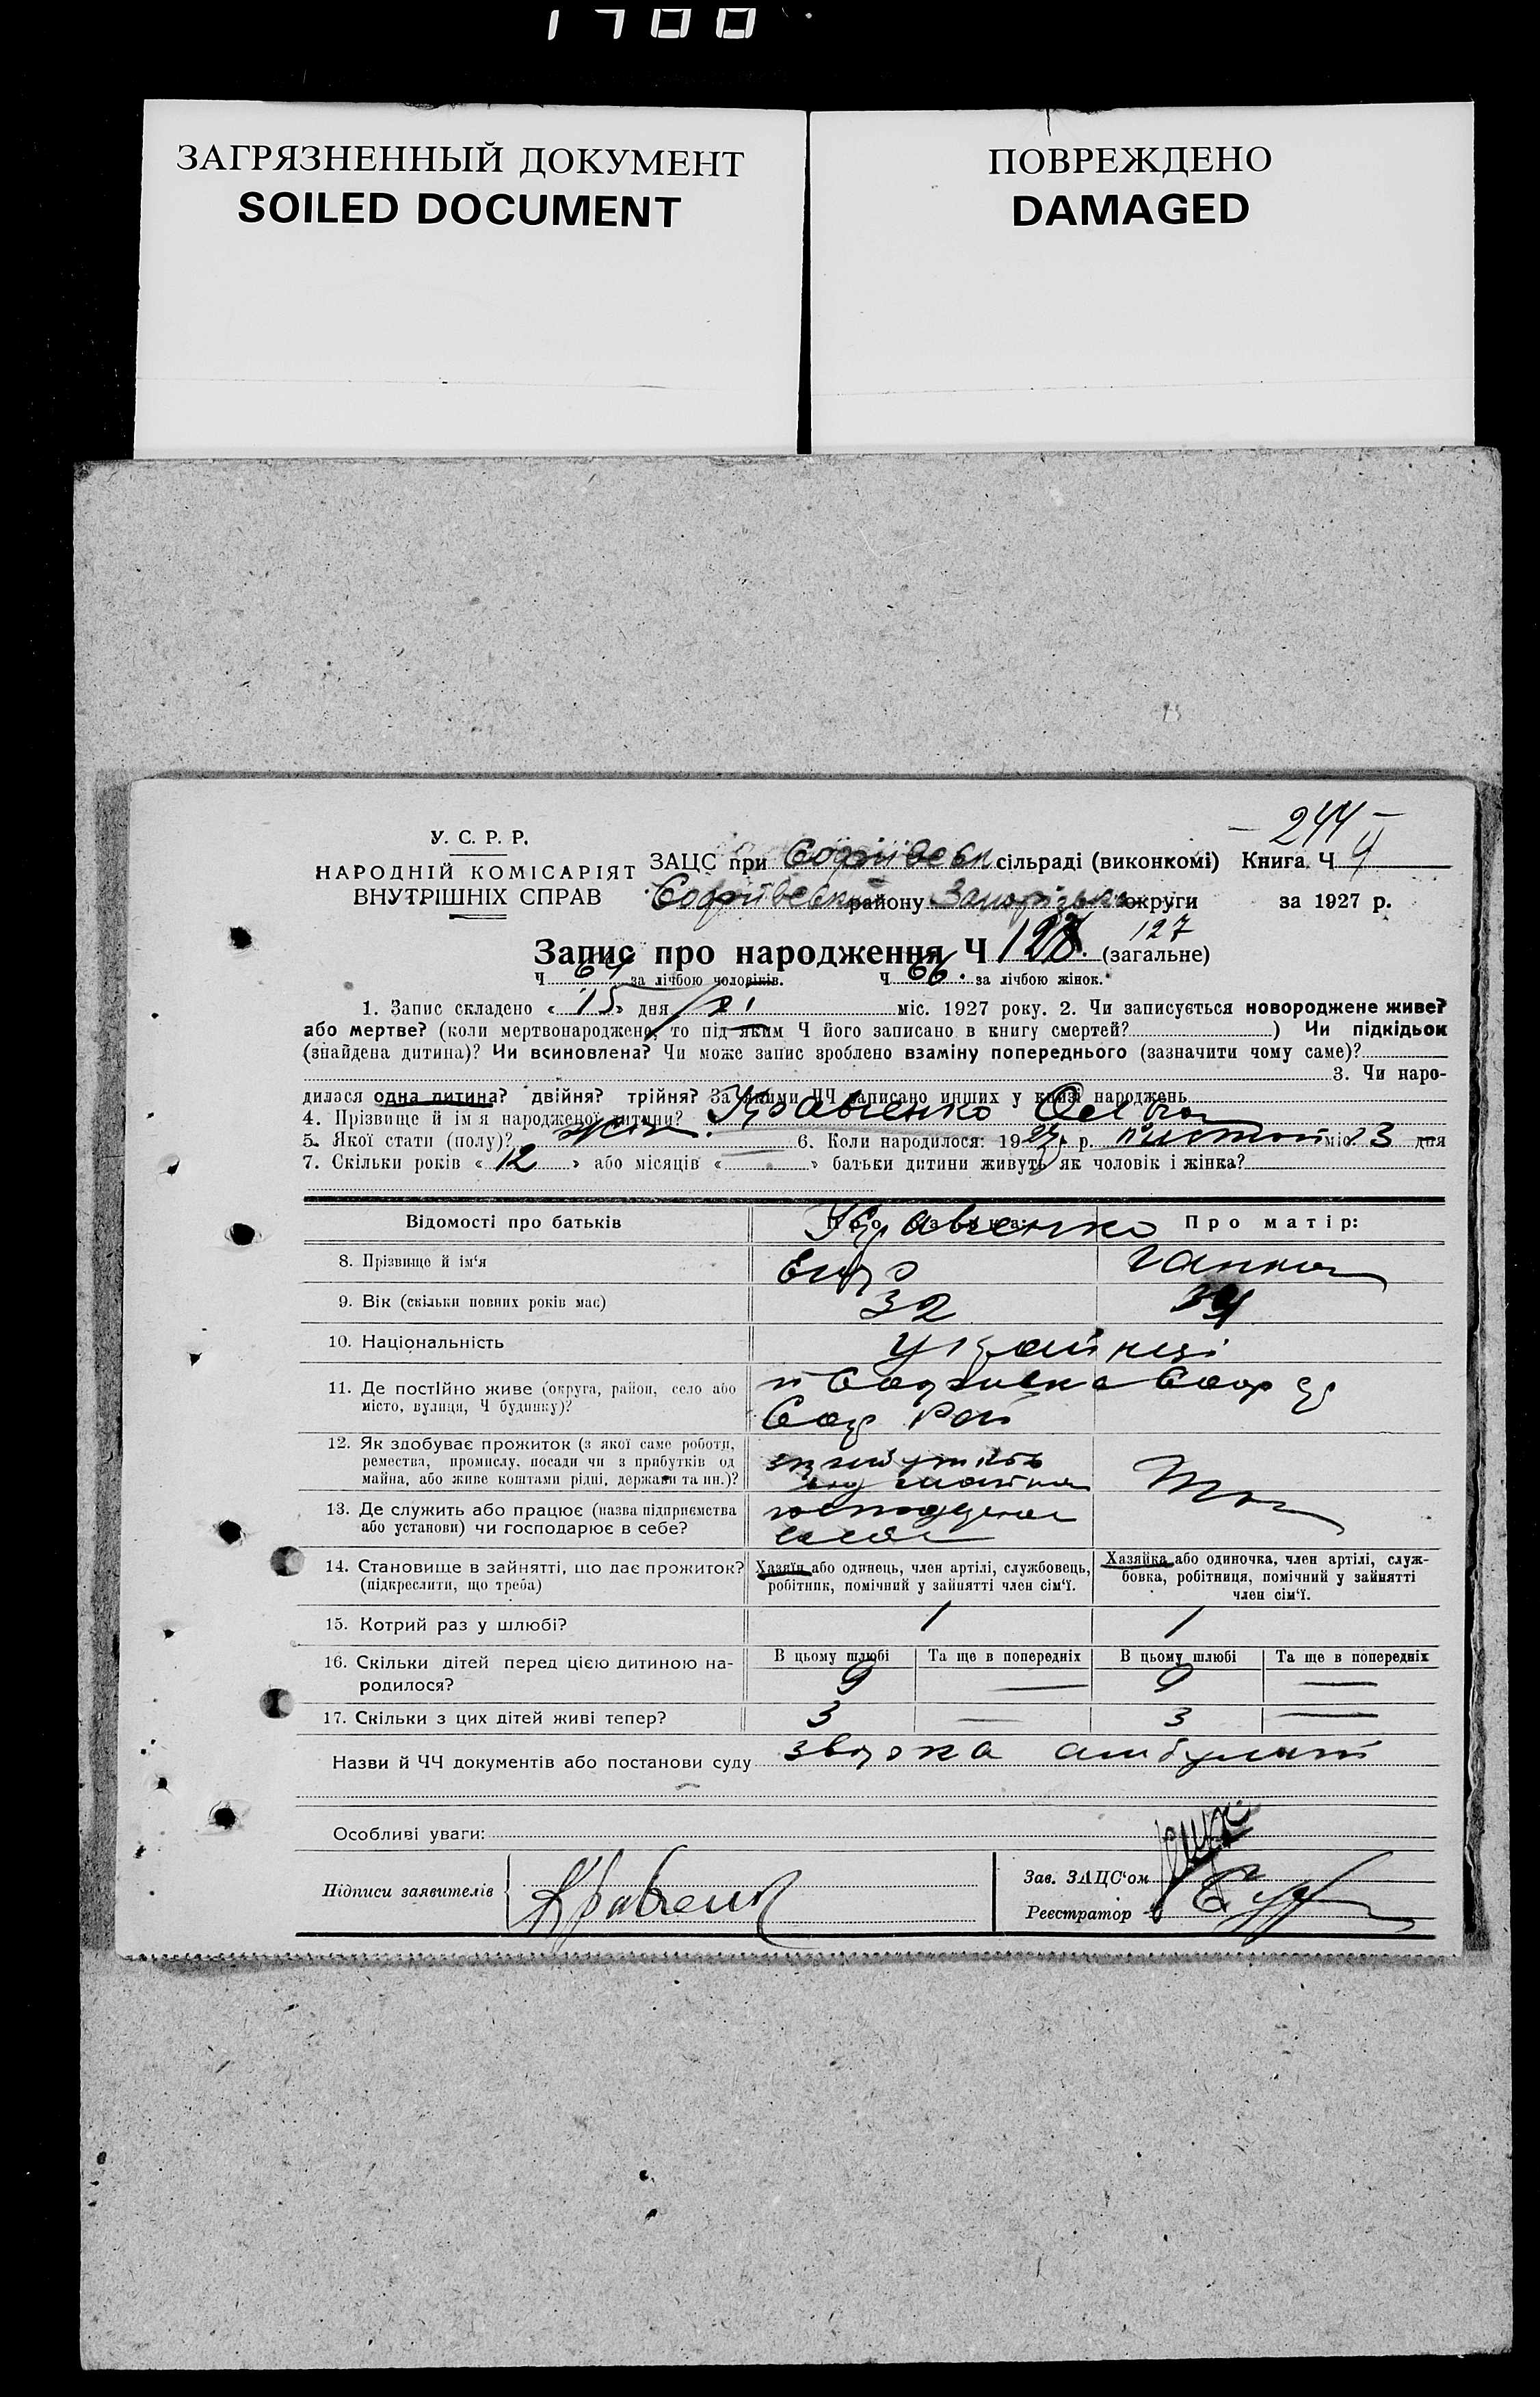 1700
ЗАГРЯЗНЕННЫЙ ДОКУМЕНТ
SOILED DOCUMENT
ПОВРЕЖДЕНО
DAMAGED
244
У. С. Р. Р.
НАРОДНІЙ КОМІСАРІЯТ
ВНУТРІШНІХ СПРАВ
ЗАЦС при Софіївськ сільраді (виконкомі) Книга Ч
Софіївськ району Запорізька округи за 1927 р.
127
Запис про народження Ч (загальне)
Ч 64 за лічбою чоловіків. Ч 66. за лічбою жінок.
1. Запис складено « 15 » дня XI міс. 1927 року. 2. Чи записується новороджене живе?
або мертве? (коли мертвонароджено, то під яким Ч його записано в книгу смертей? ) Чи підкідьок
(знайдена дитина)? Чи всиновлена? Чи може запис зроблено взаміну попереднього (зазначити чому саме)?
3. Чи наро-
дилася одна дитина? двійня? трійня? За якими ЧЧ записано инших у книзі народжень
4. Прізвище й ім'я народженої дитини? Кравченко
5. Якої стати (полу)? жін. 6. Коли народилося: 1927 р. міс. 13 дня
7. Скільки років « 12 » або місяців « » батьки дитини живуть як чоловік і жінка?
Відомості про батьків Кравченко Про матір:
8. Прізвище й ім'я Ганна
9. Вік (скільки повних років має) 32
10. Національність Українці
11. Де постійно живе (округа, район, село або
місто, вулиця, Ч будинку)?
12. Як здобуває прожиток (з якої саме роботи,
ремества, промислу, посади чи з прибутків од
майна, або живе коштами рідні, держави та ин.)?
13. Де служить або працює (назва підприємства
або установи) чи господарює в себе?
14. Становище в зайнятті, що дає прожиток?
(підкреслити, що треба)
Хазяїн або одинець, член артілі, службовець,
робітник, помічний у зайнятті член сім'ї.
Хазяйка або одиночка, член артілі, служ-
бовка, робітниця, помічний у зайнятті
член сім'ї.
15. Котрий раз у шлюбі? 1 1
В цьому шлюбі Та ще в попередніх В цьому шлюбі Та ще в попередніх
16. Скільки дітей перед цією дитиною на-
родилося? 9 — 9 —
17. Скільки з цих дітей живі тепер? 3 — 3 —
Назви й ЧЧ документів або постанови суду
Особливі уваги:
Підписи заявителів
Зав. ЗАЦС'ом
Реєстратор